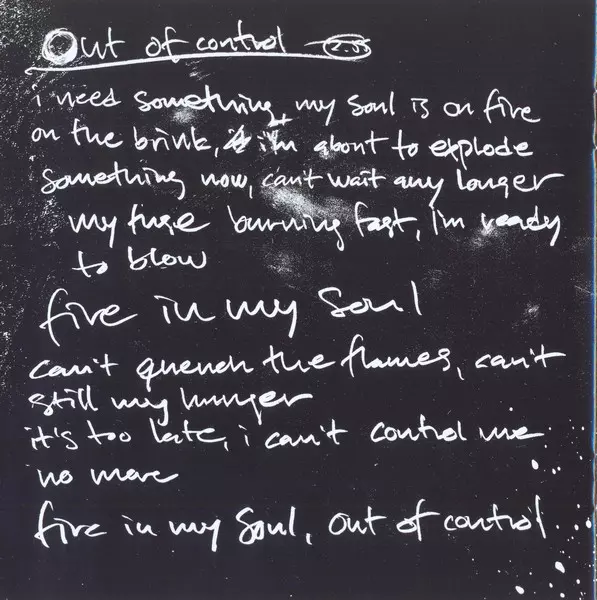 Out of control - 2.55
i need something, my soul is on fire
on the brink, i'm about to explode
something now, can't wait any longer
my fuse burning fast, I'm ready
to blow
fire in my soul
can't quench the flames, can't
still my hunger
it's too late, i can't control me
no more
fire in my soul, out of control